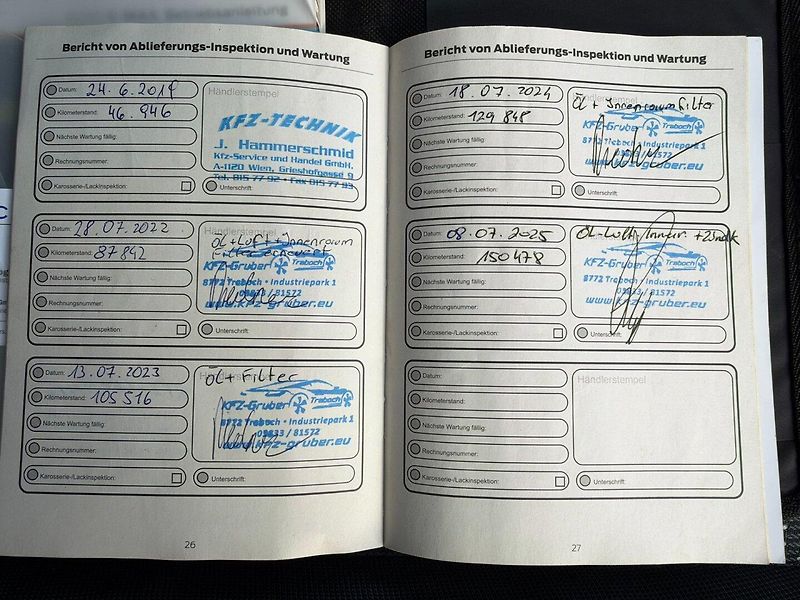 Bericht von Ablieferungs-Inspektion und Wartung
Datum: 24.6.2019
Kilometerstand: 46.946
Nächste Wartung fällig:
Rechnungsnummer:
Karosserie-/Lackinspektion:
Händlerstempel
KFZ-TECHNIK
J. Hammerschmid
Kfz-Service und Handel GmbH.
A-1120 Wien, Grieshofgasse 9
Tel. 815 77 92 • Fax 815 77 93
Unterschrift:
Datum: 28.07.2022
Kilometerstand: 87842
Nächste Wartung fällig:
Rechnungsnummer:
Karosserie-/Lackinspektion:
ÖL + Luft + Innenraum
Filter erneuert
KFZ-Gruber Traboch
8772 Traboch • Industriepark 1
03833 / 81572
www.kfz-gruber.eu
Unterschrift:
Datum: 13.07.2023
Kilometerstand: 105 516
Nächste Wartung fällig:
Rechnungsnummer:
Karosserie-/Lackinspektion:
ÖL + Filter
KFZ-Gruber Traboch
8772 Traboch • Industriepark 1
03833 / 81572
www.kfz-gruber.eu
Unterschrift:
26
Bericht von Ablieferungs-Inspektion und Wartung
Datum: 18.07.2024
Kilometerstand: 129 848
Nächste Wartung fällig:
Rechnungsnummer:
Karosserie-/Lackinspektion:
ÖL + Innenraumfilter
KFZ-Gruber Traboch
8772 Traboch • Industriepark 1
www.kfz-gruber.eu
Unterschrift:
Datum: 08.07.2025
Kilometerstand: 150478
Nächste Wartung fällig:
Rechnungsnummer:
Karosserie-/Lackinspektion:
KFZ-Gruber Traboch
8772 Traboch • Industriepark 1
03833 / 81572
www.kfz-gruber.eu
Unterschrift:
Datum:
Kilometerstand:
Nächste Wartung fällig:
Rechnungsnummer:
Karosserie-/Lackinspektion:
Händlerstempel
Unterschrift:
27